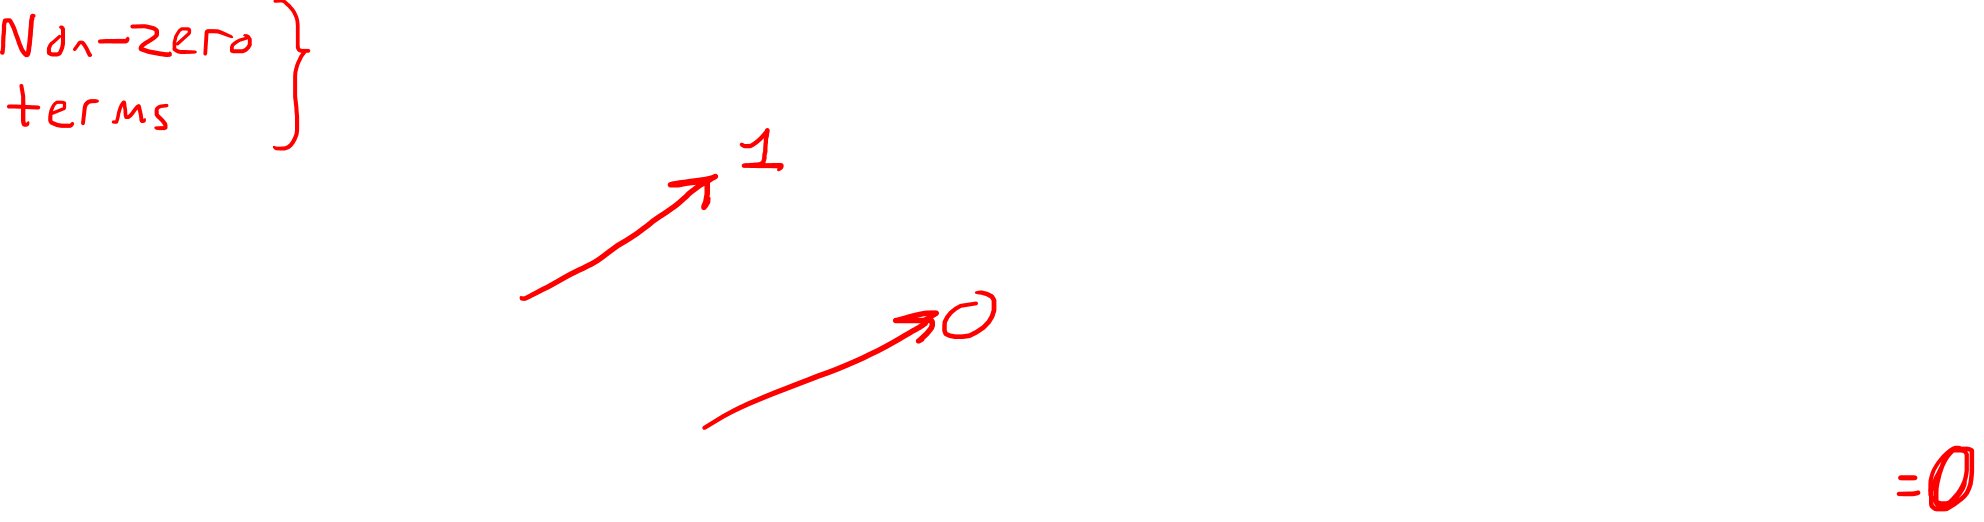 Non-zero
terms
1
0
=0